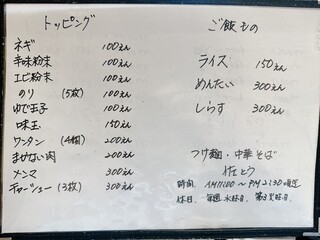 トッピング
ネギ 100えん
辛味粉末 100えん
エビ粉末 100えん
のり (5枚) 100えん
ゆで玉子 100えん
味玉 150えん
ワンタン (4個) 200えん
まかない肉 200えん
メンマ 300えん
チャーシュー (3枚) 300えん
ご飯もの
ライス 150えん
めんたい 300えん
しらす 300えん
つけ麺・中華そば
佐とう
時間 AM11:00～PM2:30
休日 毎週 水曜日、第3火曜日